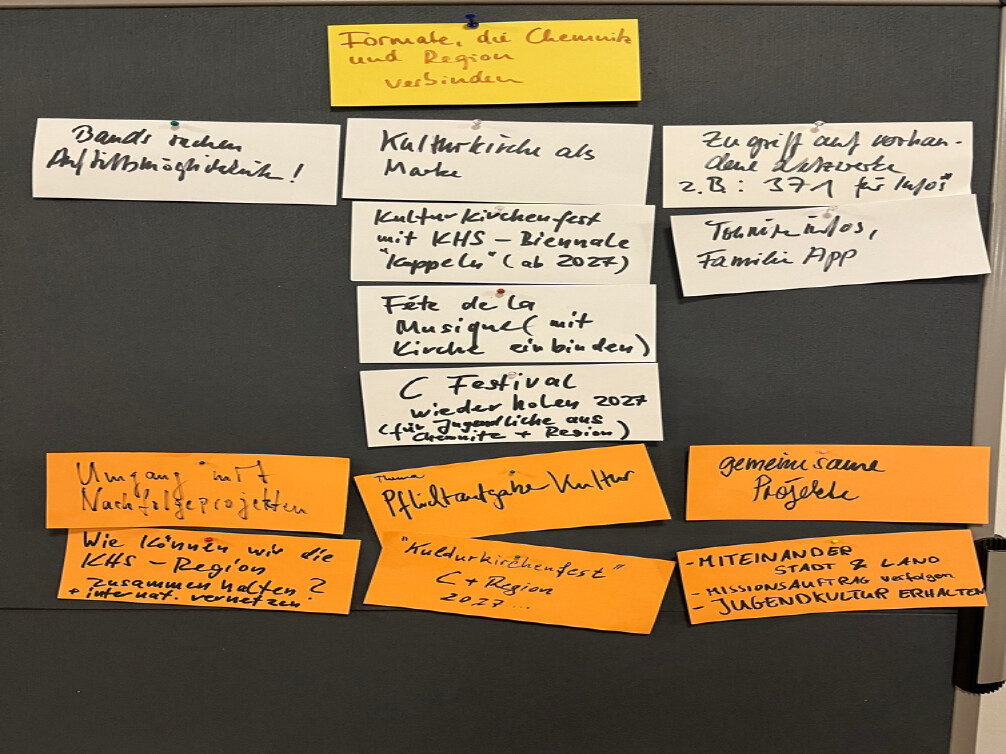 Formate, die Chemnitz
und Region
verbinden
Bands suchen
Auftrittsmöglichkeiten!
Kulturkirche als
Marke
Zugriff auf vorhan-
dene Netzwerke
z.B: 371 für Infos
Kulturkirchenfest
mit KHS - Biennale
"Koppeln" (ab 2027)
infos,
Familie App
Féte de la
Musique (mit
Kirche einbinden)
C Festival
wieder holen 2027
(für Jugendliche aus
Chemnitz + Region)
Umgang mit
Nachfolgeprojekten
Thema
Pflichtaufgabe Kultur
gemeinsame
Projekte
Wie können wir die
KHS - Region
zusammen halten?
+ internat. vernetzen?
"Kulturkirchenfest"
C + Region
2027...
- MITEINANDER
STADT & LAND
- MISSIONSAUFTRAG verfolgen
- JUGENDKULTUR ERHALTEN